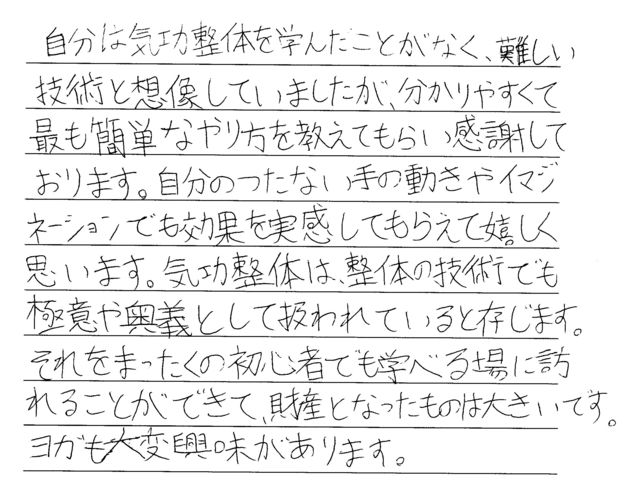 自分は気功整体を学んだことがなく、難しい
技術と想像していましたが、分かりやすくて
最も簡単なやり方を教えてもらい感謝して
おります。自分のつたない手の動きやイマジ
ネーションでも効果を実感してもらえて嬉しく
思います。気功整体は、整体の技術でも
極意や奥義として扱われていると存じます。
それをまったくの初心者でも学べる場に訪
れることができて、財産となったものは大きいです。
ヨガも大変興味があります。